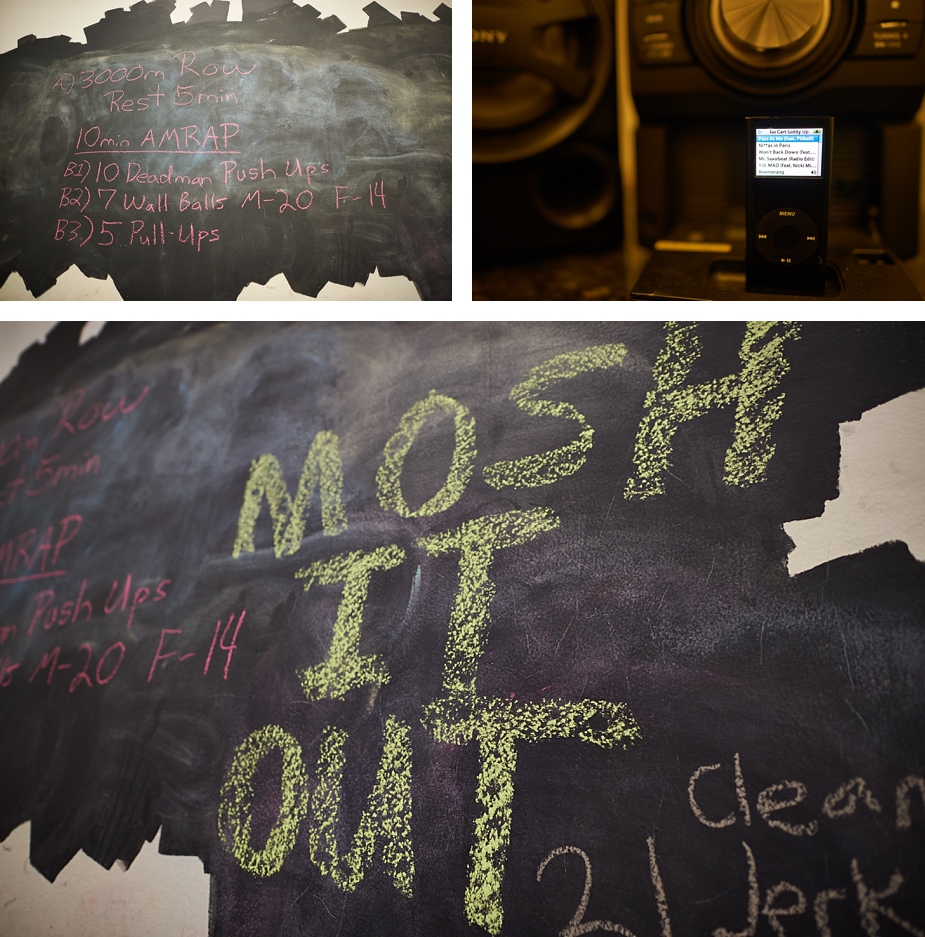 A) 3000m Row
Rest 5min
10min AMRAP
B1) 10 Deadman Push Ups
B2) 7 Wall Balls M-20 F-14
B3.) 5 Pull-Ups
SONY
Go Cart Giddy Up
Pass At Me (feat. Pitbull)
Ni**as in Paris
Won't Back Down (feat....
Mr. Saxobeat (Radio Edit)
Y.U. MAD (feat. Nicki Mi...
Boomerang
MENU
Row
st 5min
MRAP
m Push Ups
lls M-20 F-14
MOSH
IT
OUT
Clean
21 Jerk